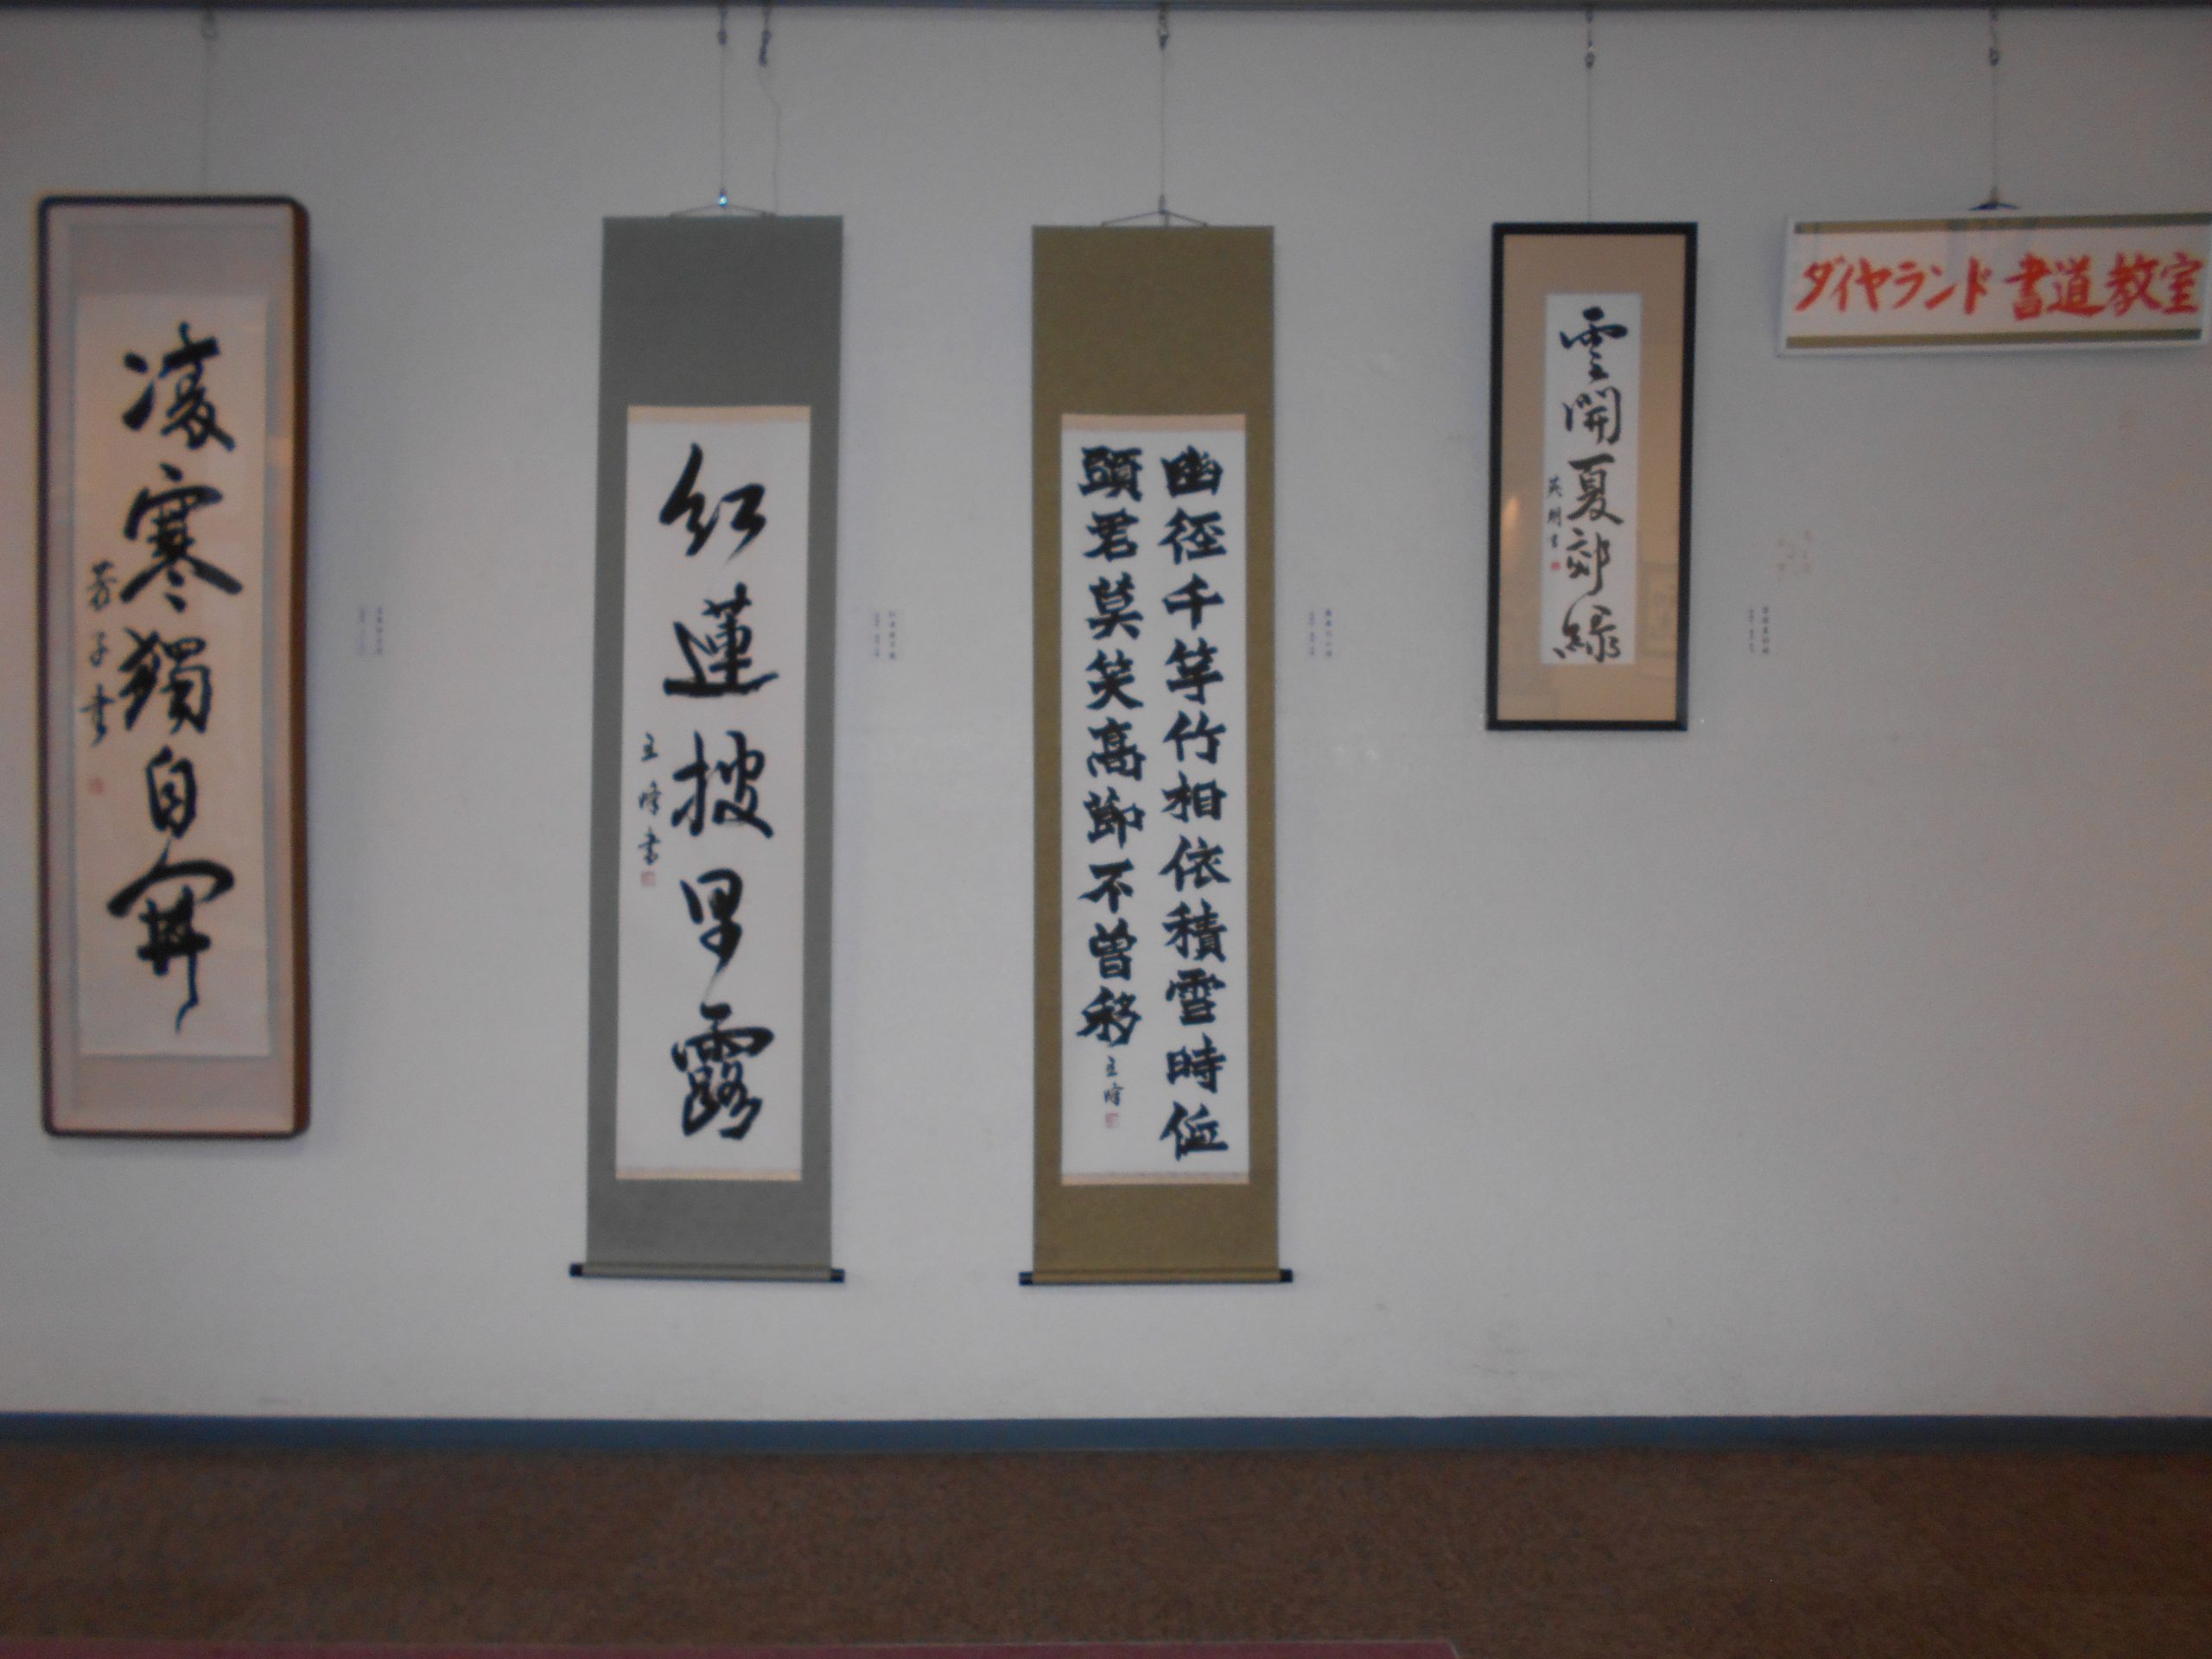 ダイヤランド書道教室
雲開夏郊緑
英明書
幽径千竿竹相依積雪時低
頭君莫笑高節不曽移
圭峰
紅蓮披早露
圭峰書
凌寒獨自開
芳子書